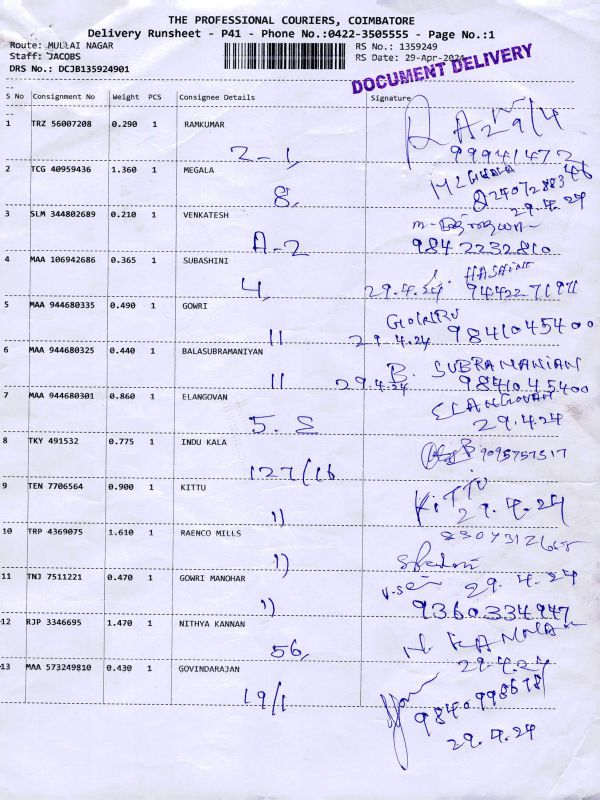 THE PROFESSIONAL COURIERS, COIMBATORE
Delivery Runsheet - P41 - Phone No.:0422-3505555 - Page No.:1
Route: MULLAI NAGAR
RS No.: 1359249
Staff: JACOBS
RS Date: 29-Apr-2024
DRS No.: DCJB135924901
DOCUMENT DELIVERY
S No Consignment No Weight PCS Consignee Details Signature
1 TRZ 56007208 0.290 1 RAMKUMAR
29/4
2-1,
99941472
2 TCG 40959436 1.360 1 MEGALA
8,
29.4.24
3 SLM 344802689 0.210 1 VENKATESH
A-2
9842232810
4 MAA 106942686 0.365 1 SUBASHINI
HASHINI
4, 29.4.24 9442271971
5 MAA 944680335 0.490 1 GOWRI
11 29.4.24 9841045400
6 MAA 944680325 0.440 1 BALASUBRAMANIYAN
B. SUBRAMANIAN
11 29.4.24 9841045400
7 MAA 944680301 0.860 1 ELANGOVAN
ELANGOVAN
5. 29.4.24
8 TKY 491532 0.775 1 INDU KALA
9095757517
127/16
9 TEN 7706564 0.900 1 KITTU
KITTU
11 29.4.24
10 TRP 4369075 1.610 1 RAENCO MILLS
11
11 TNJ 7511221 0.470 1 GOWRI MANOHAR
29.4.24
11 9360334947
12 RJP 3346695 1.470 1 NITHYA KANNAN
N. KANNAN
56, 29.4.24
13 MAA 573249810 0.430 1 GOVINDARAJAN
19/1 9840998678
29.4.24